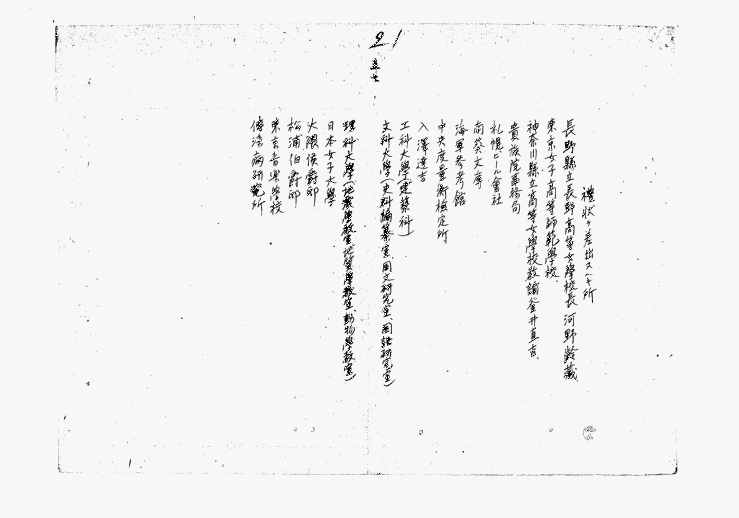 禮狀ヲ差出スヘキ所
長野縣立長野高等女學校長 河野齡藏
東京女子高等師範學校、
神奈川縣立高等女學校敎諭 釜井直吉、
貴族院事務局
札幌ビール會社
南葵文庫
海軍參考館
中央度量衡檢定所
入澤達吉
工科大學(建築科)
文科大學(史料編纂室、國文研究室、國語研究室)
理科大學(地震學敎室、地質學敎室、動物學敎室)
日本女子大學
大隈侯爵邸
松浦伯爵邸
東京音樂學校
傳染病研究所